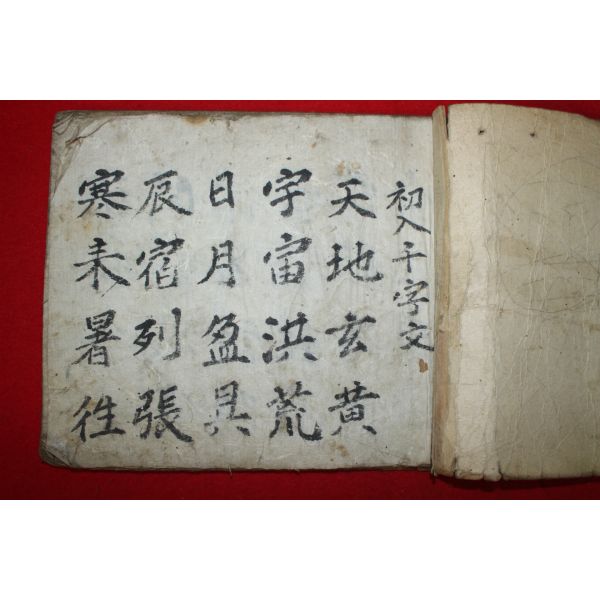 初入千字文
天地玄黄
宇宙洪荒
日月盈昃
辰宿列張
寒来暑徃